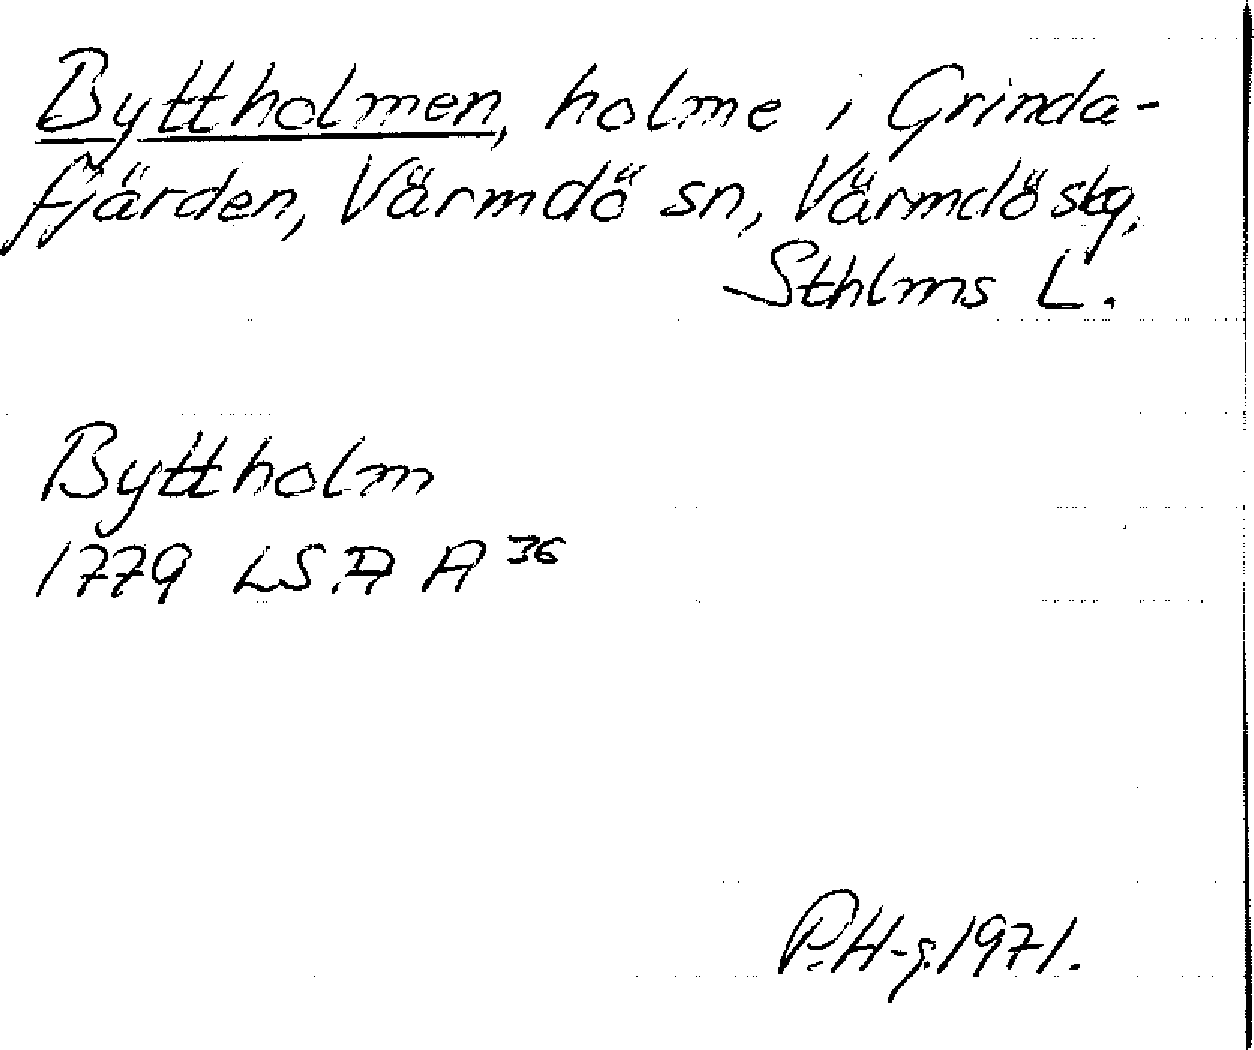 Byttholmen, holme i Grinda-
fjärden, Värmdö sn, Värmdö skg,
Sthlms L.
Byttholm
1779 LSA A 36
P.H-g. 1971.